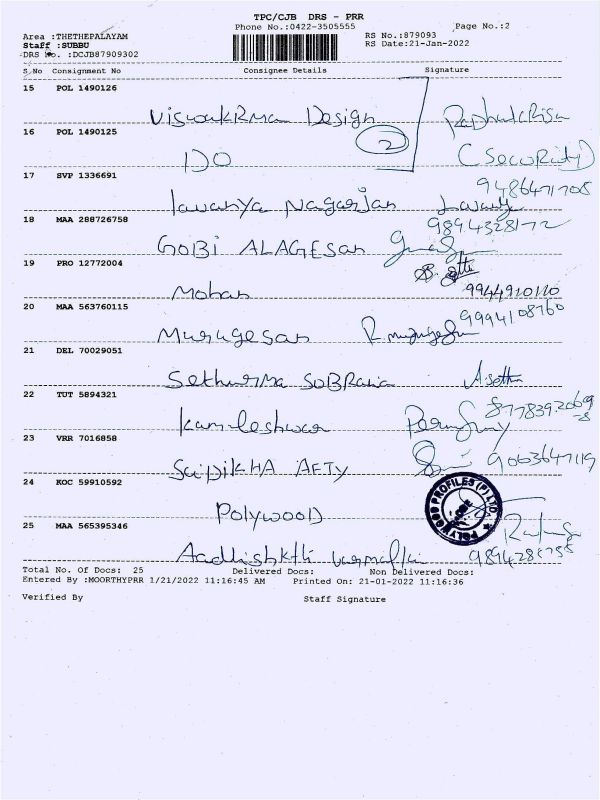 TPC/CJB DRS - PRR
Phone No.:0422-3505555 Page No.:2
Area :THETHEPALAYAM RS No.:879093
Staff :SUBBU RS Date:21-Jan-2022
DRS No. :DCJB87909302
S.No Consignment No Consignee Details Signature
15 POL 1490126
Viswakrma Design
16 POL 1490125
2
DO (Security)
17 SVP 1336691
9486471708
lavanya Nagarjan
18 MAA 288726758
9894328172
GOBI ALAGESan
19 PRO 12772004
Mohan 9944920110
20 MAA 563760115
9994108760
Murugesan
21 DEL 70029051
22 TUT 5894321
Kamleshwar
23 VRR 7016858
9063647119
24 KOC 59910592
Polywood
POLYWOOD PROFILES (P) LTD
25 MAA 565395346
Total No. Of Docs: 25 Delivered Docs: Non Delivered Docs:
Entered By :MOORTHYPRR 1/21/2022 11:16:45 AM Printed On: 21-01-2022 11:16:36
Verified By Staff Signature